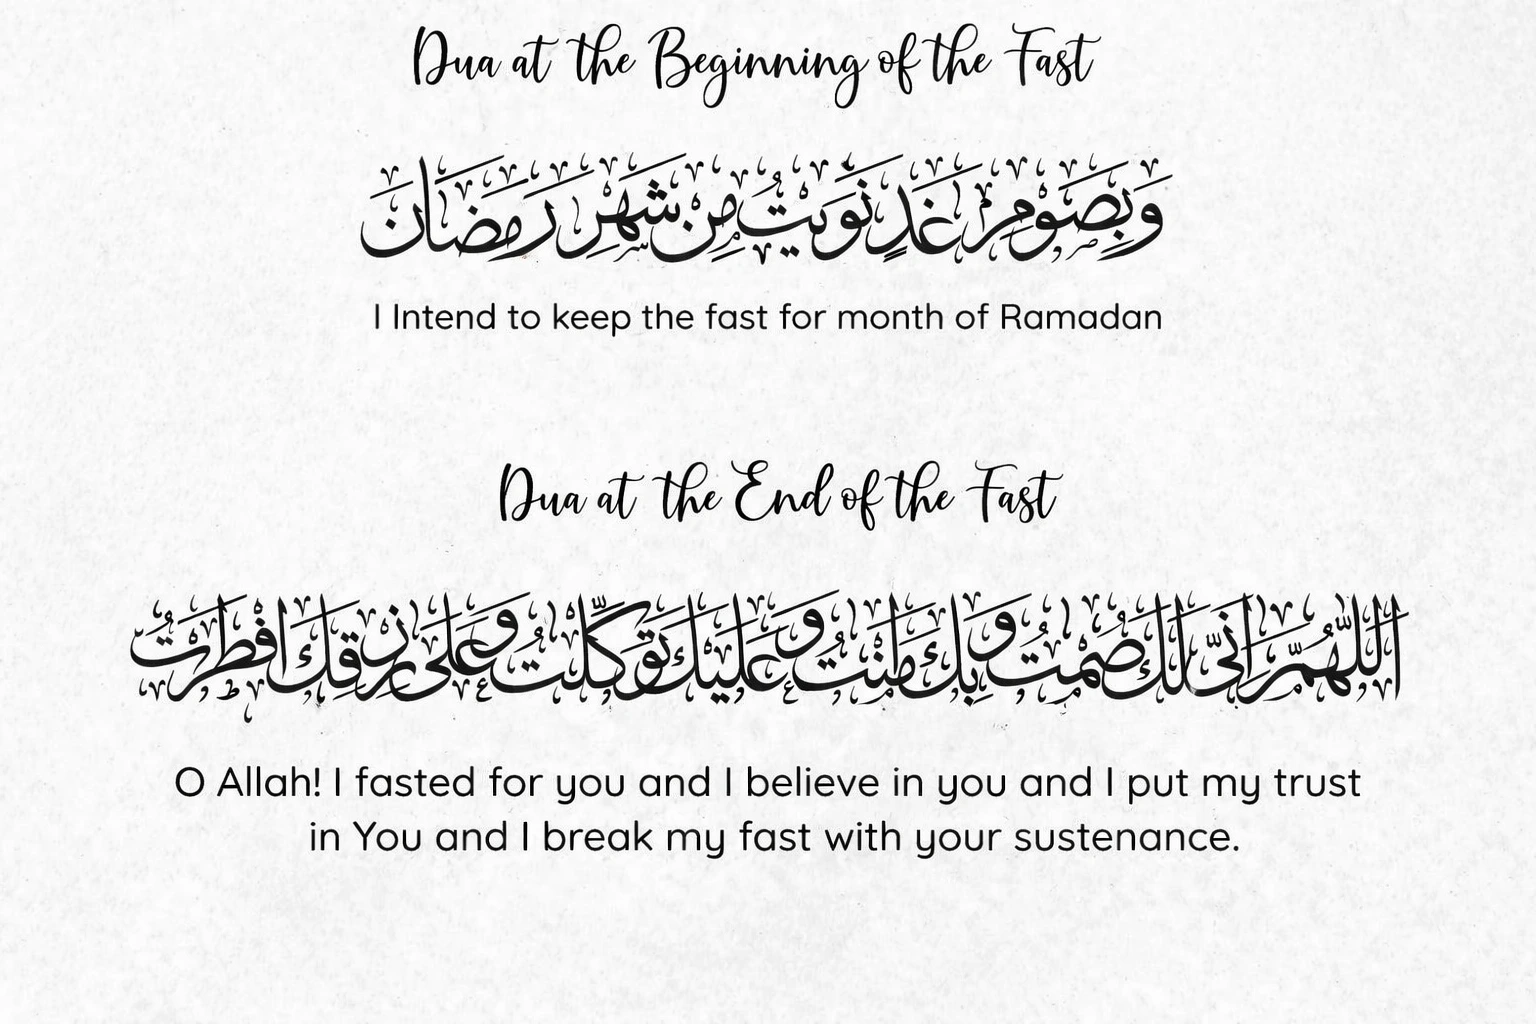 Dua at the Beginning of the Fast
وَبِصَوْمِ غَدٍ نَوَيْتُ مِنْ شَهْرِ رَمَضَانَ
I Intend to keep the fast for month of Ramadan
Dua at the End of the Fast
اَللّٰهُمَّ اِنِّی لَكَ صُمْتُ وَبِكَ اٰمَنْتُ وَعَلَيْكَ تَوَكَّلْتُ وَعَلٰی رِزْقِكَ اَفْطَرْتُ
O Allah! I fasted for you and I believe in you and I put my trust
in You and I break my fast with your sustenance.